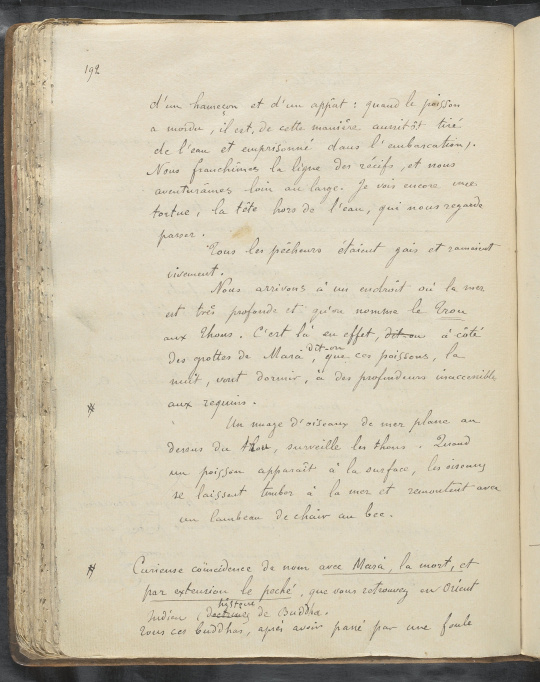 192
d'un hameçon et d'un appât : quand le poisson
a mordu, il est, de cette manière aussitôt tiré
de l'eau et emprisonné dans l'embarcation).
Nous franchîmes la ligne des récifs, et nous
aventurâmes loin au large. Je vois encore une
tortue, la tête hors de l'eau, qui nous regarde
passer.
Tous les pêcheurs étaient gais et ramaient
vivement.
Nous arrivons à un endroit où la mer
est très profonde et qu'on nomme le Trou
aux Thons. C'est là en effet, dit-on à côté
des grottes de Mara dit-on, que ces poissons, la
nuit, vont dormir, à des profondeurs inaccessibles
aux requins.
Un nuage d'oiseaux de mer plane au
dessus du trou, surveille les thons. Quand
un poisson apparaît à la surface, les oiseaux
se laissent tomber à la mer et remontent avec
un lambeau de chair au bec.
Curieuse coïncidence de nom avec Mara, la mort, et
par extension le peché, que vous retrouvez en Orient
Indien, de Buddha.
Tous ces buddhas, après avoir passé par une foule